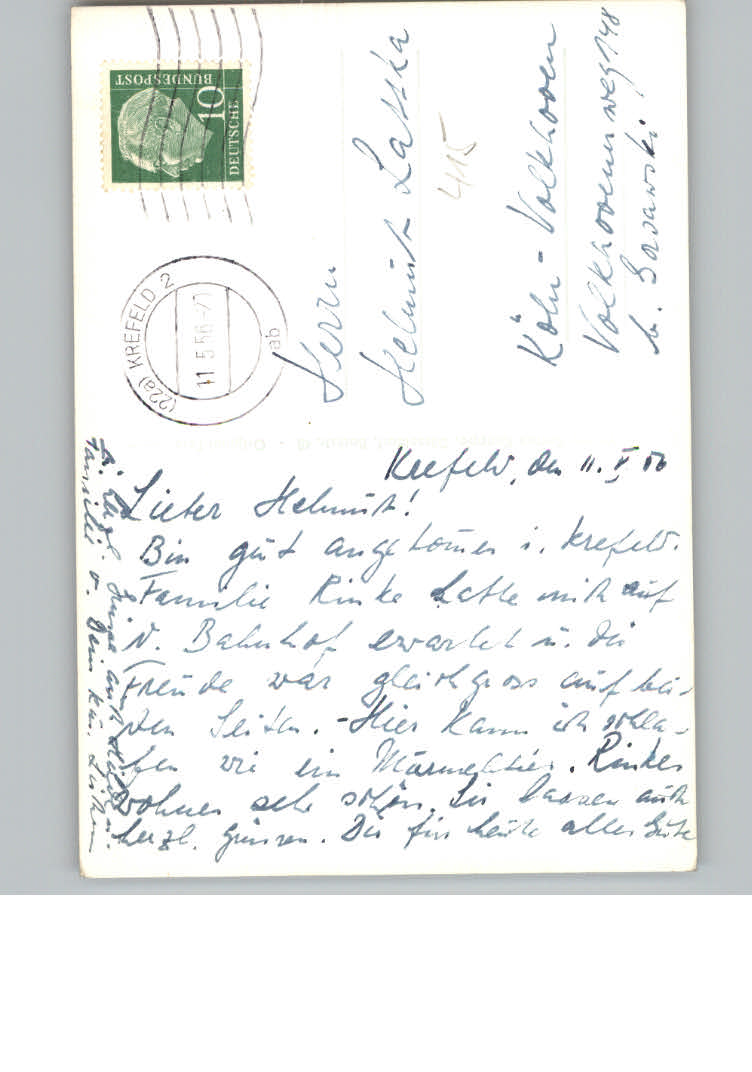 DEUTSCHE
BUNDESPOST
10
(22a) KREFELD 2
11.5.56
ab
Herrn
Helmut Latska
415
Köln-Volkhoven
Volkhovenerweg 148
b.
Krefeld, den 11. V 56
Lieber Helmut!
Bin gut angekom̄en i. Krefeld.
Familie Rinke hatte mich auf
d. Bahnhof erwartet u. die
Freude war gleichgross auf bei-
den Seiten. - Hier kann ich schla-
fen wie ein Murmeltier. Rinkes
wohnen sehr schön. Sie lassen auch
herzl. grüssen. Dir für heute alles Gute
u. herzl. Grüsse auch
Familie v. Dein